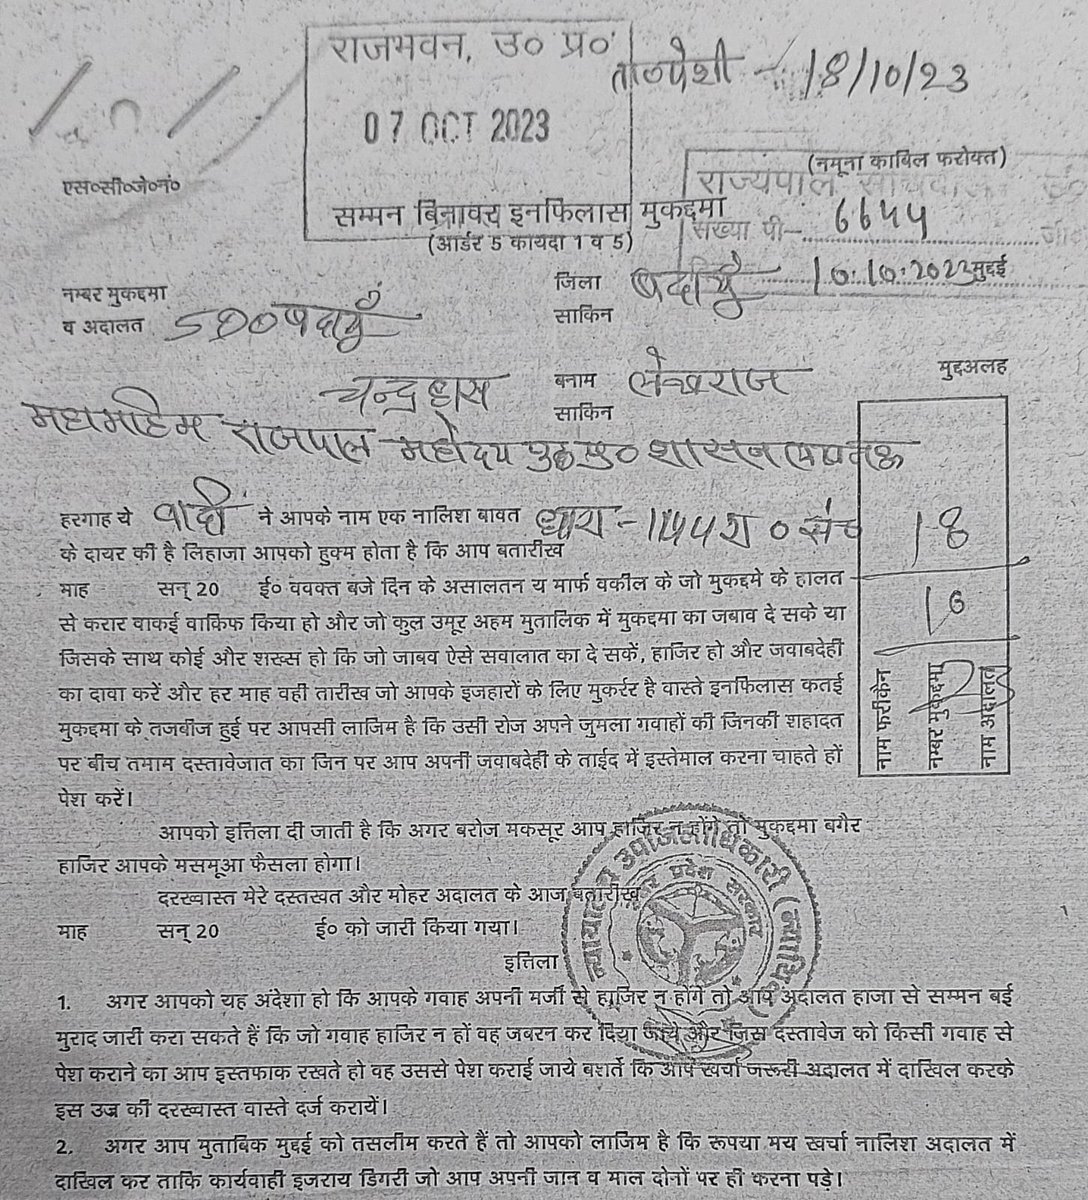 राजभवन, उ० प्र०
ता०पेशी - 18/10/23
07 OCT 2023
(नमूना काबिल फरोक्त)
एस०सी०जे०नं०
राज्यपाल
सम्मन बिनावर इनफिलास मुकद्दमा
संख्या पी- 6644
(आर्डर 5 कायदा 1 व 5)
नम्बर मुकद्दमा
जिला बदायूँ 10.10.2023 मुद्दई
व अदालत SDO बदायूँ
साकिन
चन्द्रहास बनाम लेखराज मुद्दअलह
साकिन
महामहिम राजपाल महोदय उ०प्र० शासन लखनऊ
हरगाह ये वादी ने आपके नाम एक नालिश बावत धारा - 144 रा० सं०
के दायर की है लिहाजा आपको हुक्म होता है कि आप बतारीख
माह सन् 20 ई० ववक्त बजे दिन के असालतन य मार्फ वकील के जो मुकद्दमे के हालत
से करार वाकई वाकिफ किया हो और जो कुल उमूर अहम मुतालिक में मुकद्दमा का जबाव दे सके या
जिसके साथ कोई और शख्स हो कि जो जाबव ऐसे सवालात का दे सकें, हाजिर हो और जवाबदेही
का दावा करें और हर माह वही तारीख जो आपके इजहारों के लिए मुकर्रर है वास्ते इनफिलास कतई
मुकद्दमा के तजबीज हुई पर आपसी लाजिम है कि उसी रोज अपने जुमला गवाहों की जिनकी शहादत
पर बीच तमाम दस्तावेजात का जिन पर आप अपनी जवाबदेही के ताईद में इस्तेमाल करना चाहते हों
पेश करें।
18
10
नाम फरीकेन
नम्बर मुकद्दमा
नाम अदालत
आपको इत्तिला दी जाती है कि अगर बरोज मकसूर आप हाजिर न होंगे तो मुकद्दमा बगैर
हाजिर आपके मसमूआ फैसला होगा।
दरख्वास्त मेरे दस्तखत और मोहर अदालत के आज बतारीख
माह सन् 20 ई० को जारी किया गया।
न्यायालय उपजिलाधिकारी (न्यायिक)
उत्तर प्रदेश सरकार
इत्तिला
1. अगर आपको यह अंदेशा हो कि आपके गवाह अपनी मर्जी से हाजिर न होंगे तो आप अदालत हाजा से सम्मन बई
मुराद जारी करा सकते हैं कि जो गवाह हाजिर न हों वह जबरन कर दिया जाये और जिस दस्तावेज को किसी गवाह से
पेश कराने का आप इस्तफाक रखते हो वह उससे पेश कराई जाये बशर्ते कि आप खर्चा जरूरी अदालत में दाखिल करके
इस उज्र की दरख्वास्त वास्ते दर्ज करायें।
2. अगर आप मुताबिक मुद्दई को तसलीम करते हैं तो आपको लाजिम है कि रूपया मय खर्चा नालिश अदालत में
दाखिल कर ताकि कार्यवाही इजराय डिगरी जो आप अपनी जान व माल दोनों पर ही करना पड़े।